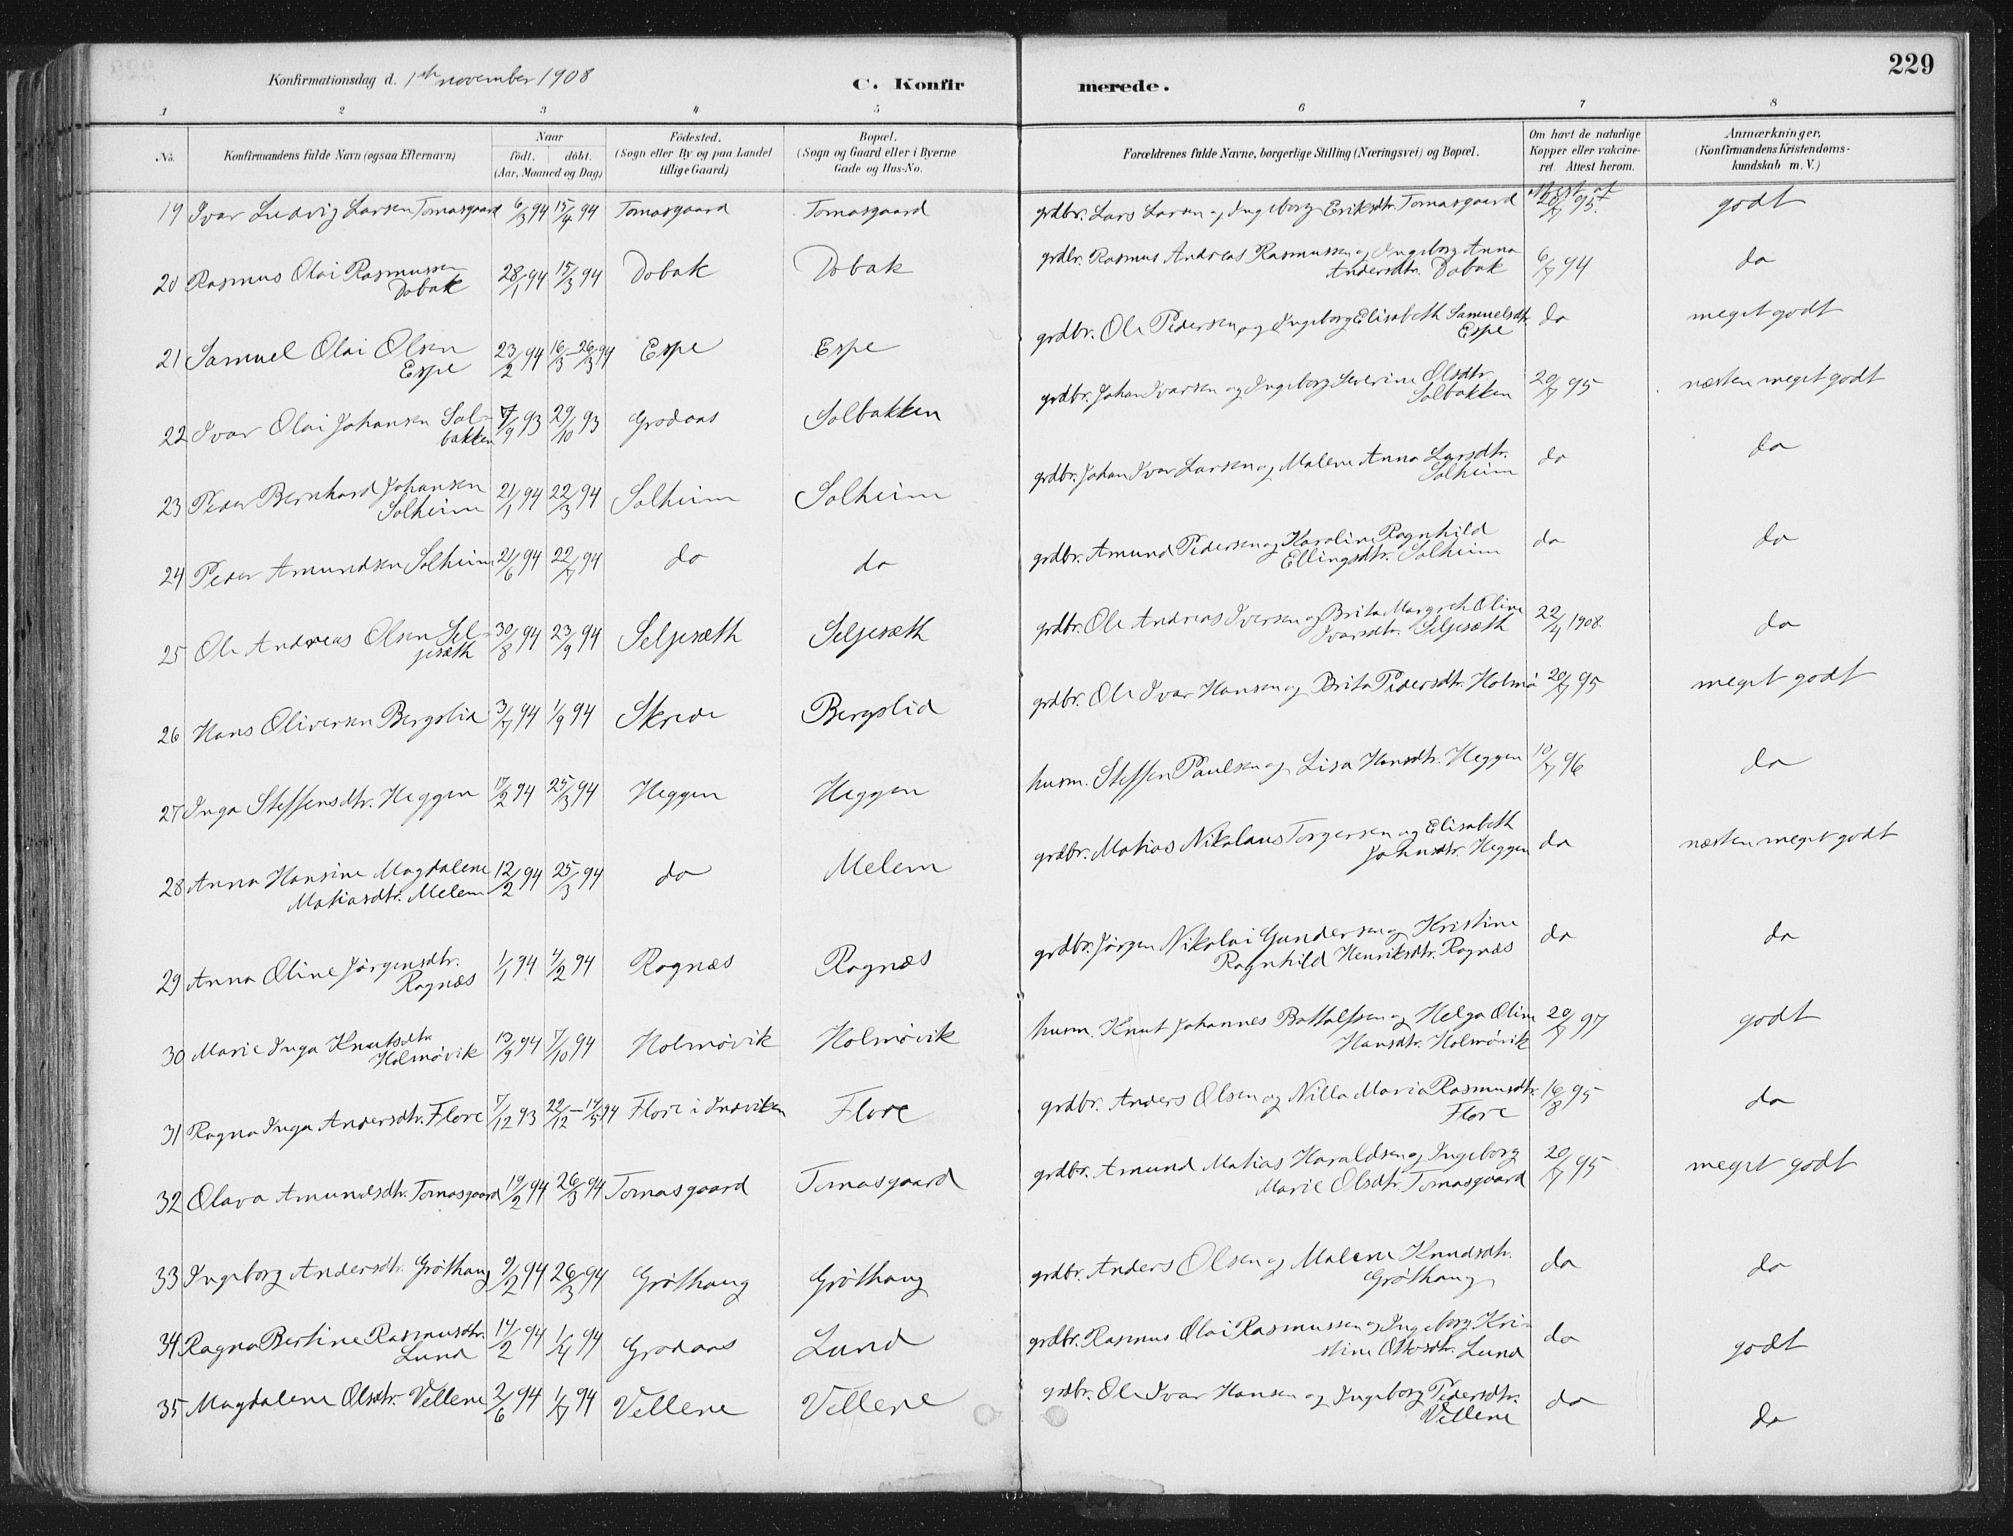 229
Konfirmationsdag d. 1ste november 1908
C. Konfirmerede.
1 2 3 4 5 6 7 8
No. | Konfirmandens fulde Navn (ogsaa Efternavn) | Naar født. døbt. (Aar, Maaned og Dag) | Födested. (Sogn eller By og paa Landet tillige Gaard) | Bopæl. (Sogn og Gaard eller i Byerne Gade og Hus-No. | Forældrenes fulde Navne, borgerlige Stilling (Næringsvei) og Bopæl. | Om havt de naturlige Kopper eller vakcineret. Attest herom. | Anmærkninger. (Konfirmandens Kristendomskundskab m. V.)
19 Ivar Ludvig Larsen Tomasgaard 6/3 94 15/4 94 Tomasgaard Tomasgaard grdbr. Lars Larsen og Ingeborg Eriksdtr. Tomasgaard attest af 20/7 95. godt
20 Rasmus Olai Rasmussen Dobak 28/1 94 15/3 94 Dobak Dobak grdbr. Rasmus Andreas Rasmussen og Ingeborg Anna Andersdtr. Dobak 6/7 94 do
21 Samuel Olai Olsen Espe 23/2 94 16/3-26/3 94 Espe Espe grdbr. Ole Pedersen og Ingeborg Elisabeth Samuelsdtr. Espe do meget godt
22 Ivar Olai Johansen Solbakken 7/9 93 29/10 93 Grodaas Solbakken grdbr. Johan Ivarsen og Ingeborg Severine Olsdtr. Solbakken 20/7 95 næsten meget godt
23 Peder Bernhard Johansen Solheim 21/1 94 22/3 94 Solheim Solheim grdbr. Johan Ivar Larsen og Malene Anna Larsdtr. Solheim do do
24 Peder Amundsen Solheim 21/6 94 22/7 94 do do grdbr. Amund Pedersen og Karoline Ragnhild Ellingsdtr. Solheim do do
25 Ole Andreas Olsen Seljesæth 30/8 94 23/9 94 Seljesæth Seljesæth grdbr. Ole Andreas Iversen og Brita Margreth Oline Ivarsdtr. Seljesæth 22/4 1908. do
26 Hans Oliversen Bergslid 3/7 94 1/9 94 Skrede Bergslid grdbr. Ole Ivar Hansen og Brita Pedersdtr. Holmö 20/7 95 meget godt
27 Inga Steffensdtr. Heggen 17/2 94 25/3 94 Heggen Heggen husm. Steffen Paulsen og Lisa Hansdtr. Heggen 10/7 96 do
28 Anna Hansine Magdalene Matiasdtr. Melem 12/2 94 25/3 94 do Melem grdbr. Matias Nikolaus Torgersen og Elisabeth Johnsdtr. Heggen do næsten meget godt
29 Anna Oline Jørgensdtr. Rognæs 1/1 94 4/2 94 Rognæs Rognæs grdbr. Jørgen Nikolai Gundersen og Kristine Ragnhild Henriksdtr. Rognæs do do
30 Marie Inga Knutsdtr. Holmøvik 13/9 94 7/10 94 Holmøvik Holmøvik husm. Knut Johannes Bottolfsen og Helga Oline Hansdtr. Holmøvik 20/7 97 godt
31 Ragna Inga Andersdtr. Flore 7/12 93 22/12-14/5 94 Flore i Indviken Flore grdbr. Anders Olsen og Nilla Maria Rasmusdtr. Flore 16/8 95 do
32 Olava Amundsdtr. Tomasgaard 19/2 94 26/3 94 Tomasgaard Tomasgaard grdbr. Amund Matias Haraldsen og Ingeborg Marie Olsdtr. Tomasgaard 20/7 95 meget godt
33 Ingeborg Andersdtr. Grøthaug 9/2 94 26/3 94 Grøthaug Grøthaug grdbr. Anders Olsen og Malene Knudsdtr. Grøthaug do do
34 Ragna Bertine Rasmusdtr. Lund 14/2 94 1/4 94 Grodaas Lund grdbr. Rasmus Olai Rasmussen og Ingeborg Kristine Ottosdtr. Lund do godt
35 Magdalene Olsdtr. Vellene 2/6 94 1/7 94 Vellene Vellene grdbr. Ole Ivar Hansen og Ingeborg Pedersdtr. Vellene do do